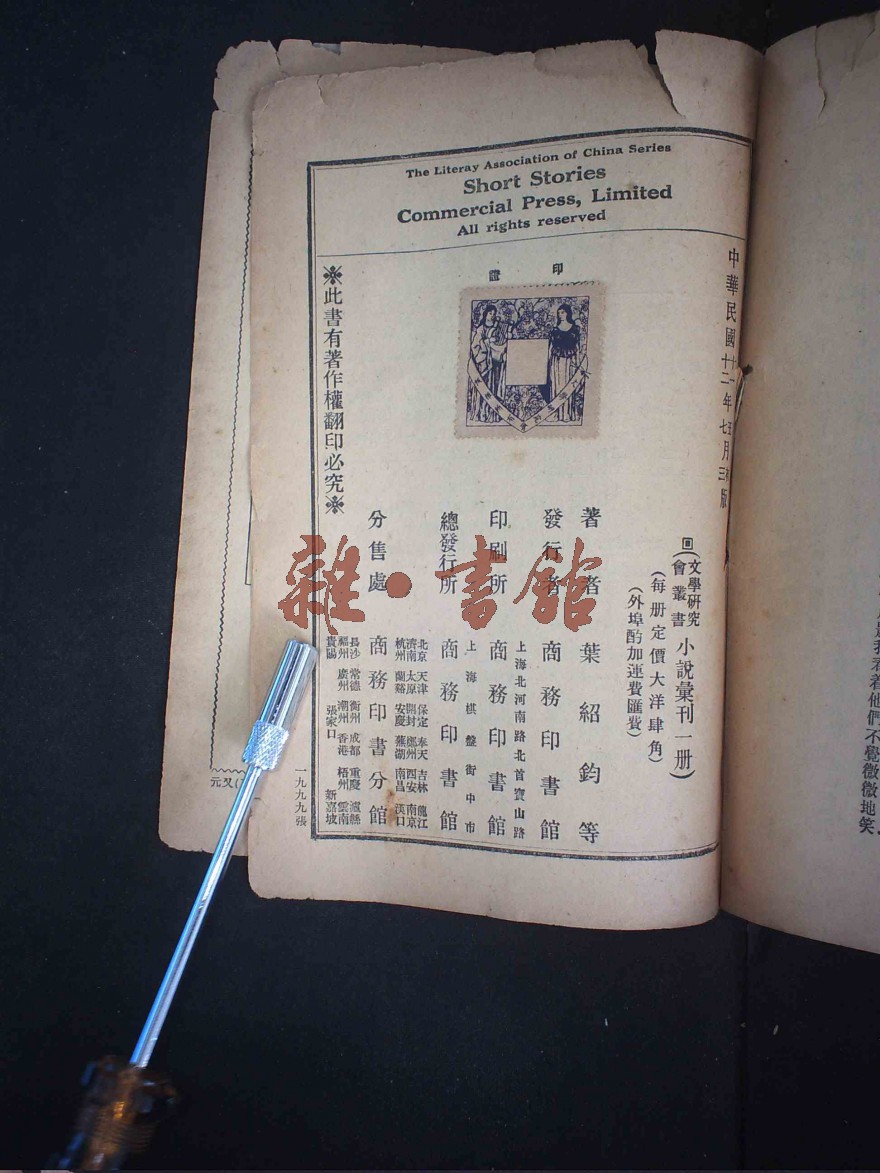 The Literay Association of China Series
Short Stories
Commercial Press, Limited
All rights reserved
印證
中華民國
十一年五月初版
十二年七月三版
文學研究會叢書
小說彙刊一册
(每册定價大洋肆角)
(外埠酌加運費匯費)
著者 葉紹鈞等
發行者 商務印書館
上海北河南路北首寶山路
印刷所 商務印書館
上海棋盤街中市
總發行所 商務印書館
北京 天津 保定 奉天 吉林 龍江
濟南 太原 開封 鄭州 西安 南京
杭州 蘭谿 安慶 蕪湖 南昌 漢口
分售處 商務印書分館
長沙 常德 衡州 成都 重慶 瀘縣
福州 廣州 潮州 香港 梧州 雲南
貴陽 張家口 新嘉坡
※此書有著作權翻印必究※
一九九九張
雜·書館
看着他們不覺微微地笑.
元又